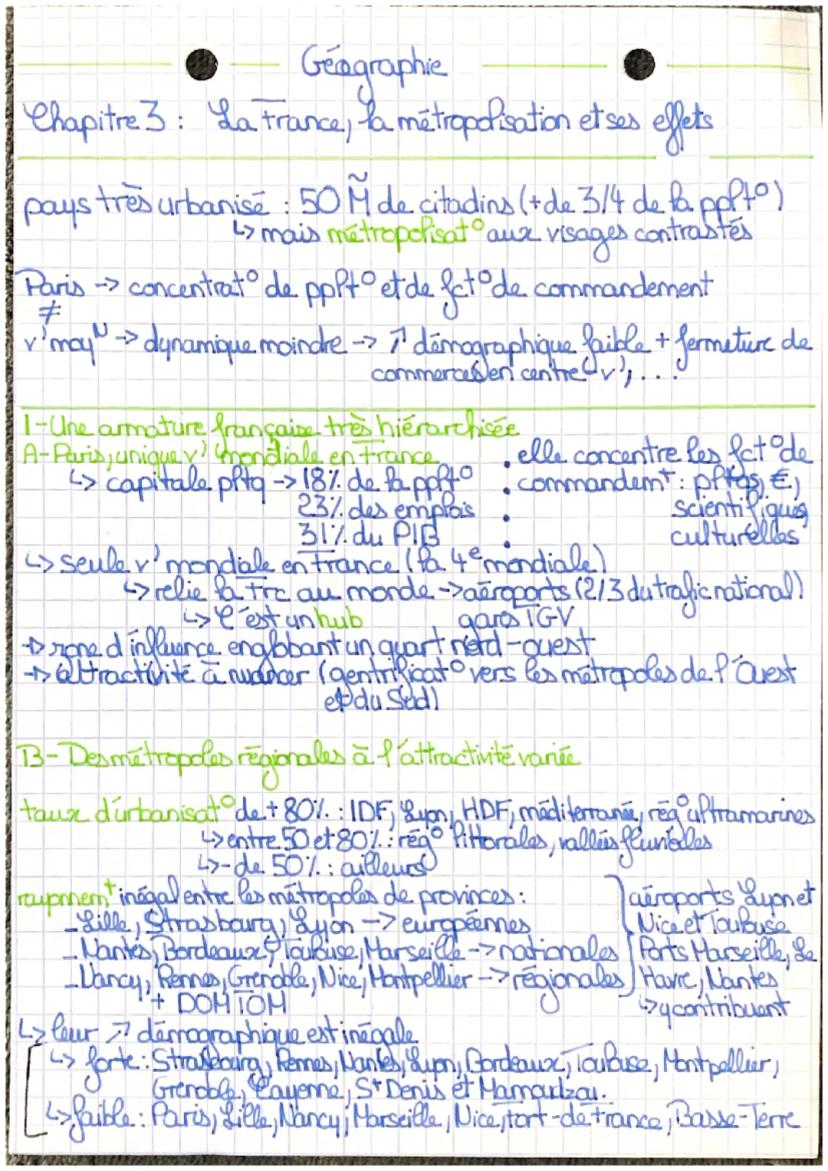 Géographie
Chapitre 3 : La France, la métropolisation et ses effets
pays très urbanisé : 50 M̃ de citadins (+ de 3/4 de la ppltº)
↳ mais métropolisatº aux visages contrastés
Paris -> concentratº de ppltº et de fctº de commandement
≠
v' moyᴺ -> dynamique moindre -> ↗ démographique faible + fermeture de
commerces en centre v', ...
I - Une armature française très hiérarchisée
A - Paris, unique v' mondiale en France
↳ capitale pltq -> 18% de la ppltº
23% des emplois
31% du PIB
• elle concentre les fctº de
• commandemt : pltqs, €,
• scientifiques
• culturelles
↳ seule v' mondiale en France (la 4e mondiale)
↳ relie la Frc au monde -> aéroports (2/3 du trafic national)
↳ C'est un hub gares TGV
-> zone d'influence englobant un quart nord-ouest
-> attractivité à nuancer (gentrificatº vers les métropoles de l'Ouest
et du Sud)
B - Des métropoles régionales à l'attractivité variée
taux d'urbanisatº de + 80% : IDF, Lyon, HDF, méditerranée, régº ultramarines
↳ entre 50 et 80% : régº littorales, vallées fluviales
↳ - de 50% : ailleurs
rayonnemt inégal entre les métropoles de provinces :
- Lille, Strasbourg, Lyon -> européennes
- Nantes, Bordeaux, Toulouse, Marseille -> nationales
- Nancy, Rennes, Grenoble, Nice, Montpellier -> régionales
+ DOM TOM
aéroports Lyon et
Nice et Toulouse
Ports Marseille, Le
Havre, Nantes
↳ y contribuent
↳ leur ↗ démographique est inégale
↳ forte : Strasbourg, Rennes, Nantes, Lyon, Bordeaux, Toulouse, Montpellier,
Grenoble, Cayenne, St Denis et Mamoudzou.
↳ faible : Paris, Lille, Nancy, Marseille, Nice, Fort-de-France, Basse-Terre